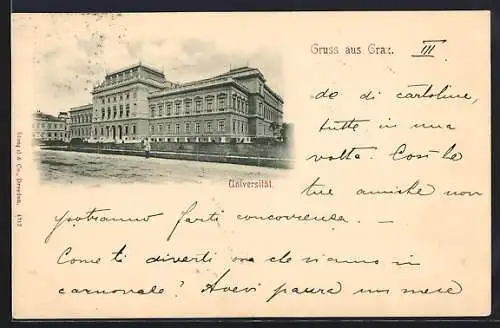 Gruss aus Graz. III
do di cartoline,
tutte in una
volta. Così le
tue amiche non
potranno farti concorrenza. —
Come ti diverti ora che siamo in
carnovale? Avevi paura un mese
Universität.
Stengel & Co., Dresden. 4712